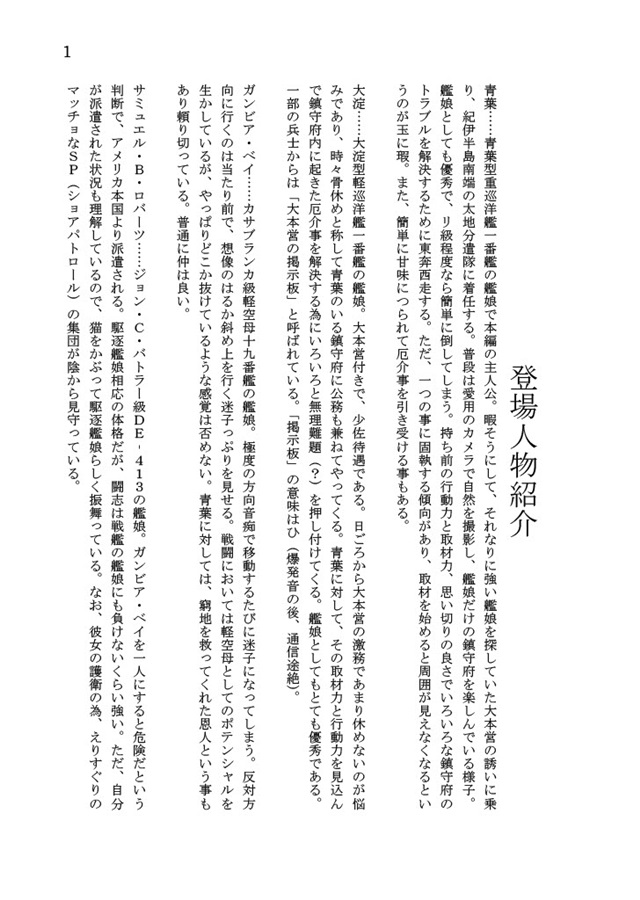 1
登場人物紹介
青葉……青葉型重巡洋艦一番艦の艦娘で本編の主人公。暇そうにして、それなりに強い艦娘を探していた大本営の誘いに乗
り、紀伊半島南端の太地分遣隊に着任する。普段は愛用のカメラで自然を撮影し、艦娘だけの鎮守府を楽しんでいる様子。
艦娘としても優秀で、リ級程度なら簡単に倒してしまう。持ち前の行動力と取材力、思い切りの良さでいろいろな鎮守府の
トラブルを解決するために東奔西走する。ただ、一つの事に固執する傾向があり、取材を始めると周囲が見えなくなるとい
うのが玉に瑕。また、簡単に甘味につられて厄介事を引き受ける事もある。
大淀……大淀型軽巡洋艦一番艦の艦娘。大本営付きで、少佐待遇である。日ごろから大本営の激務であまり休めないのが悩
みであり、時々骨休めと称して青葉のいる鎮守府に公務も兼ねてやってくる。青葉に対して、その取材力と行動力を見込ん
で鎮守府内に起きた厄介事を解決する為にいろいろと無理難題（？）を押し付けてくる。艦娘としてもとても優秀である。
一部の兵士からは「大本営の掲示板」と呼ばれている。「掲示板」の意味はひ（爆発音の後、通信途絶）。
ガンビア・ベイ……カサブランカ級軽空母十九番艦の艦娘。極度の方向音痴で移動するたびに迷子になってしまう。反対方
向に行くのは当たり前で、想像のはるか斜め上を行く迷子っぷりを見せる。戦闘においては軽空母としてのポテンシャルを
生かしているが、やっぱりどこか抜けているような感覚は否めない。青葉に対しては、窮地を救ってくれた恩人という事も
あり頼り切っている。普通に仲は良い。
サミュエル・B・ロバーツ……ジョン・C・バトラー級DE-413の艦娘。ガンビア・ベイを一人にすると危険だという
判断で、アメリカ本国より派遣される。駆逐艦娘相応の体格だが、闘志は戦艦の艦娘にも負けないくらい強い。ただ、自分
が派遣された状況も理解しているので、猫をかぶって駆逐艦娘らしく振舞っている。なお、彼女の護衛の為、えりすぐりの
マッチョなSP（ショアパトロール）の集団が陰から見守っている。